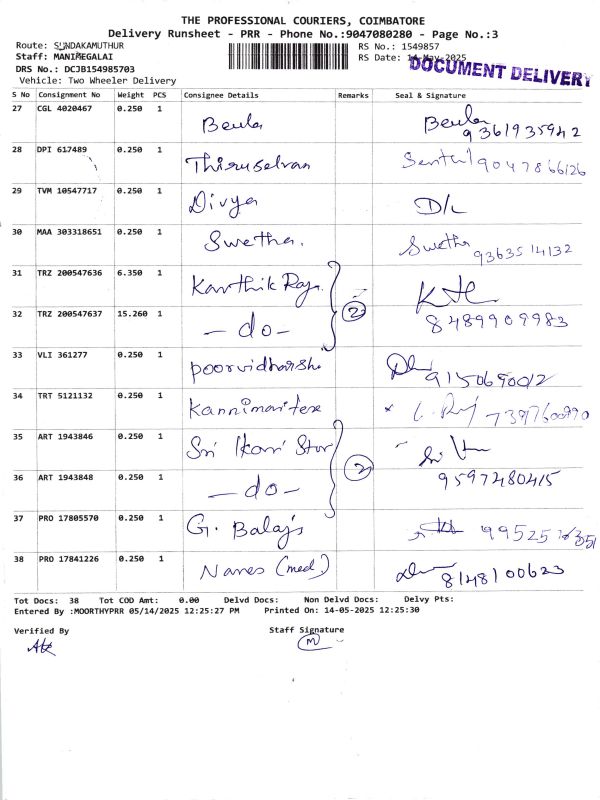 THE PROFESSIONAL COURIERS, COIMBATORE
Delivery Runsheet - PRR - Phone No.:9047080280 - Page No.:3
Route: SUNDAKAMUTHUR
RS No.: 1549857
Staff: MANIMEGALAI
RS Date: 14-May-2025
DRS No.: DCJB154985703
DOCUMENT DELIVERY
Vehicle: Two Wheeler Delivery
S No Consignment No Weight PCS Consignee Details Remarks Seal & Signature
27 CGL 4020467 0.250 1 Beula Beula 9361935942
28 DPI 617489 0.250 1 Thiruselvan Senthil 9047866126
29 TVM 10547717 0.250 1 Divya D/L
30 MAA 303318651 0.250 1 Swetha. Swetha 9363514132
31 TRZ 200547636 6.350 1 Karthik Raja. 2
32 TRZ 200547637 15.260 1 -do- 8489909983
33 VLI 361277 0.250 1 poorvidharshe 9150690012
34 TRT 5121132 0.250 1 Kannimartex
35 ART 1943846 0.250 1 Sri Hari Stor 2
36 ART 1943848 0.250 1 -do- 9597480415
37 PRO 17805570 0.250 1 G. Balaji
38 PRO 17841226 0.250 1 Nanes (med) 8148100623
Tot Docs: 38 Tot COD Amt: 0.00 Delvd Docs: Non Delvd Docs: Delvy Pts:
Entered By :MOORTHYPRR 05/14/2025 12:25:27 PM Printed On: 14-05-2025 12:25:30
Verified By Staff Signature
M